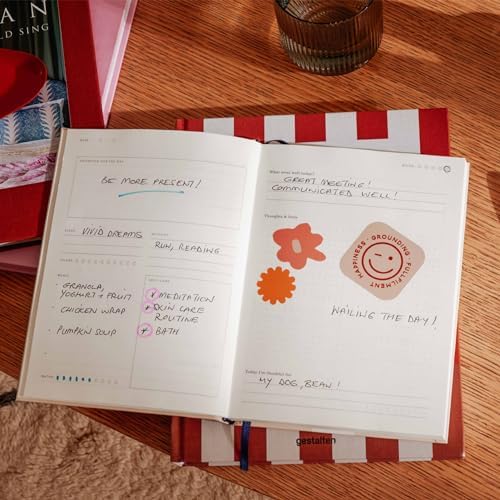 AN
LD SING
INTENTION FOR THE DAY
BE MORE PRESENT!
VIVID DREAMS
RUN, READING
GRANOLA,
YOGHURT + FRUIT
CHICKEN WRAP
PUMPKIN SOUP
SELF-CARE
MEDITATION
SKIN CARE
ROUTINE
BATH
What went well today?
GREAT MEETING!
COMMUNICATED WELL!
Thoughts & Notes
HAPPINESS · GROUNDING · FULFILMENT
NAILING THE DAY!
Today I'm thankful for
MY DOG, BEAN!
gestalten